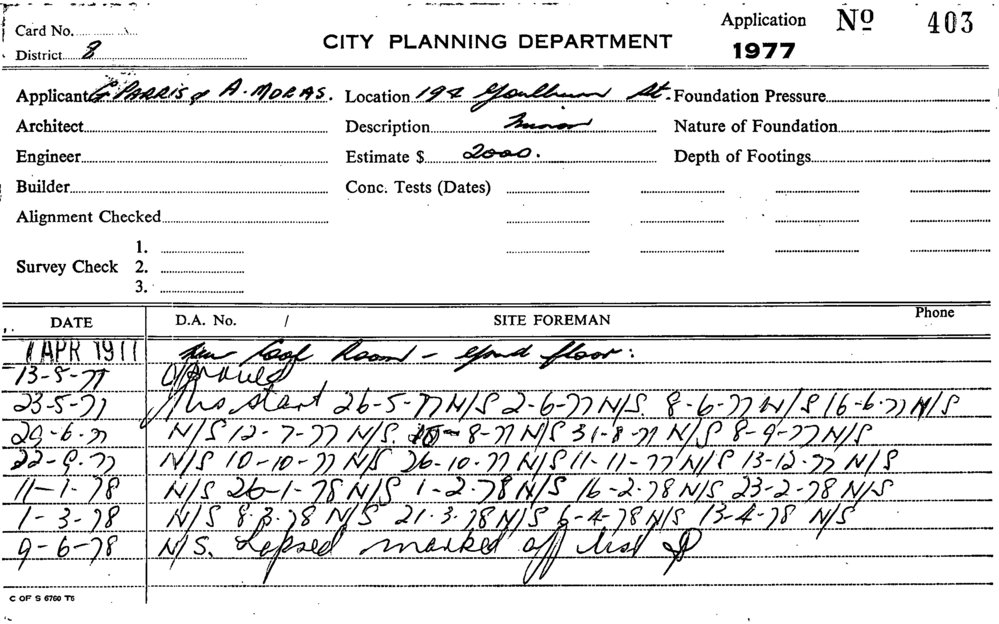 Card No.
District 8
CITY PLANNING DEPARTMENT
Application No 403
1977
Applicant G. PARRIS & A. MORAS. Location 194 Goulburn St. Foundation Pressure
Architect Description Minor Nature of Foundation
Engineer Estimate $ 2000. Depth of Footings
Builder Conc. Tests (Dates)
Alignment Checked
1.
Survey Check 2.
3.
DATE D.A. No. / SITE FOREMAN Phone
1 APR 1977 New Cool Room - Grnd floor:
13-5-77 Approved
23-5-77 No start 26-5-77 N/S 2-6-77 N/S. 8-6-77 N/S 16-6-77 N/S
29-6-77 N/S 12-7-77 N/S. -8-77 N/S 31-8-77 N/S 8-9-77 N/S
22-9-77 N/S 10-10-77 N/S 26-10-77 N/S 11-11-77 N/S 13-12-77 N/S
11-1-78 N/S 26-1-78 N/S 1-2-78 N/S 16-2-78 N/S 23-2-78 N/S
1-3-78 N/S 8-3-78 N/S 21-3-78 N/S 6-4-78 N/S 13-4-78 N/S
9-6-78 N/S. Lapsed marked off list
C OF S 6760 T6